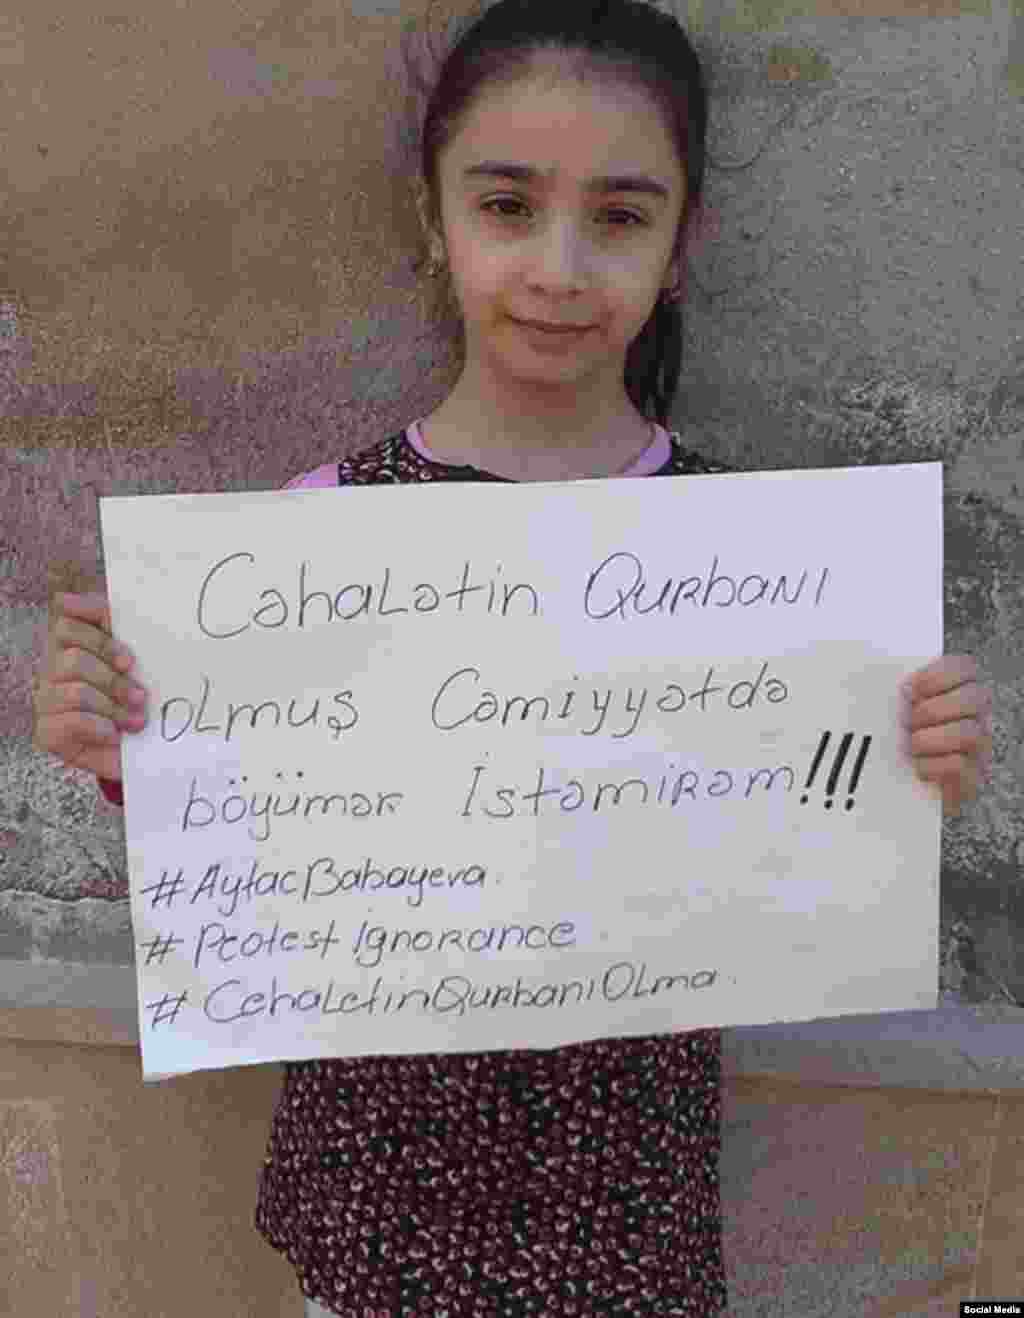 Cəhalətin Qurbanı
olmuş Cəmiyyətdə
böyümək İstəmirəm!!!
#AytacBabayeva.
#ProtestIgnorance.
#CehaletinQurbanıOlma.
Social Media